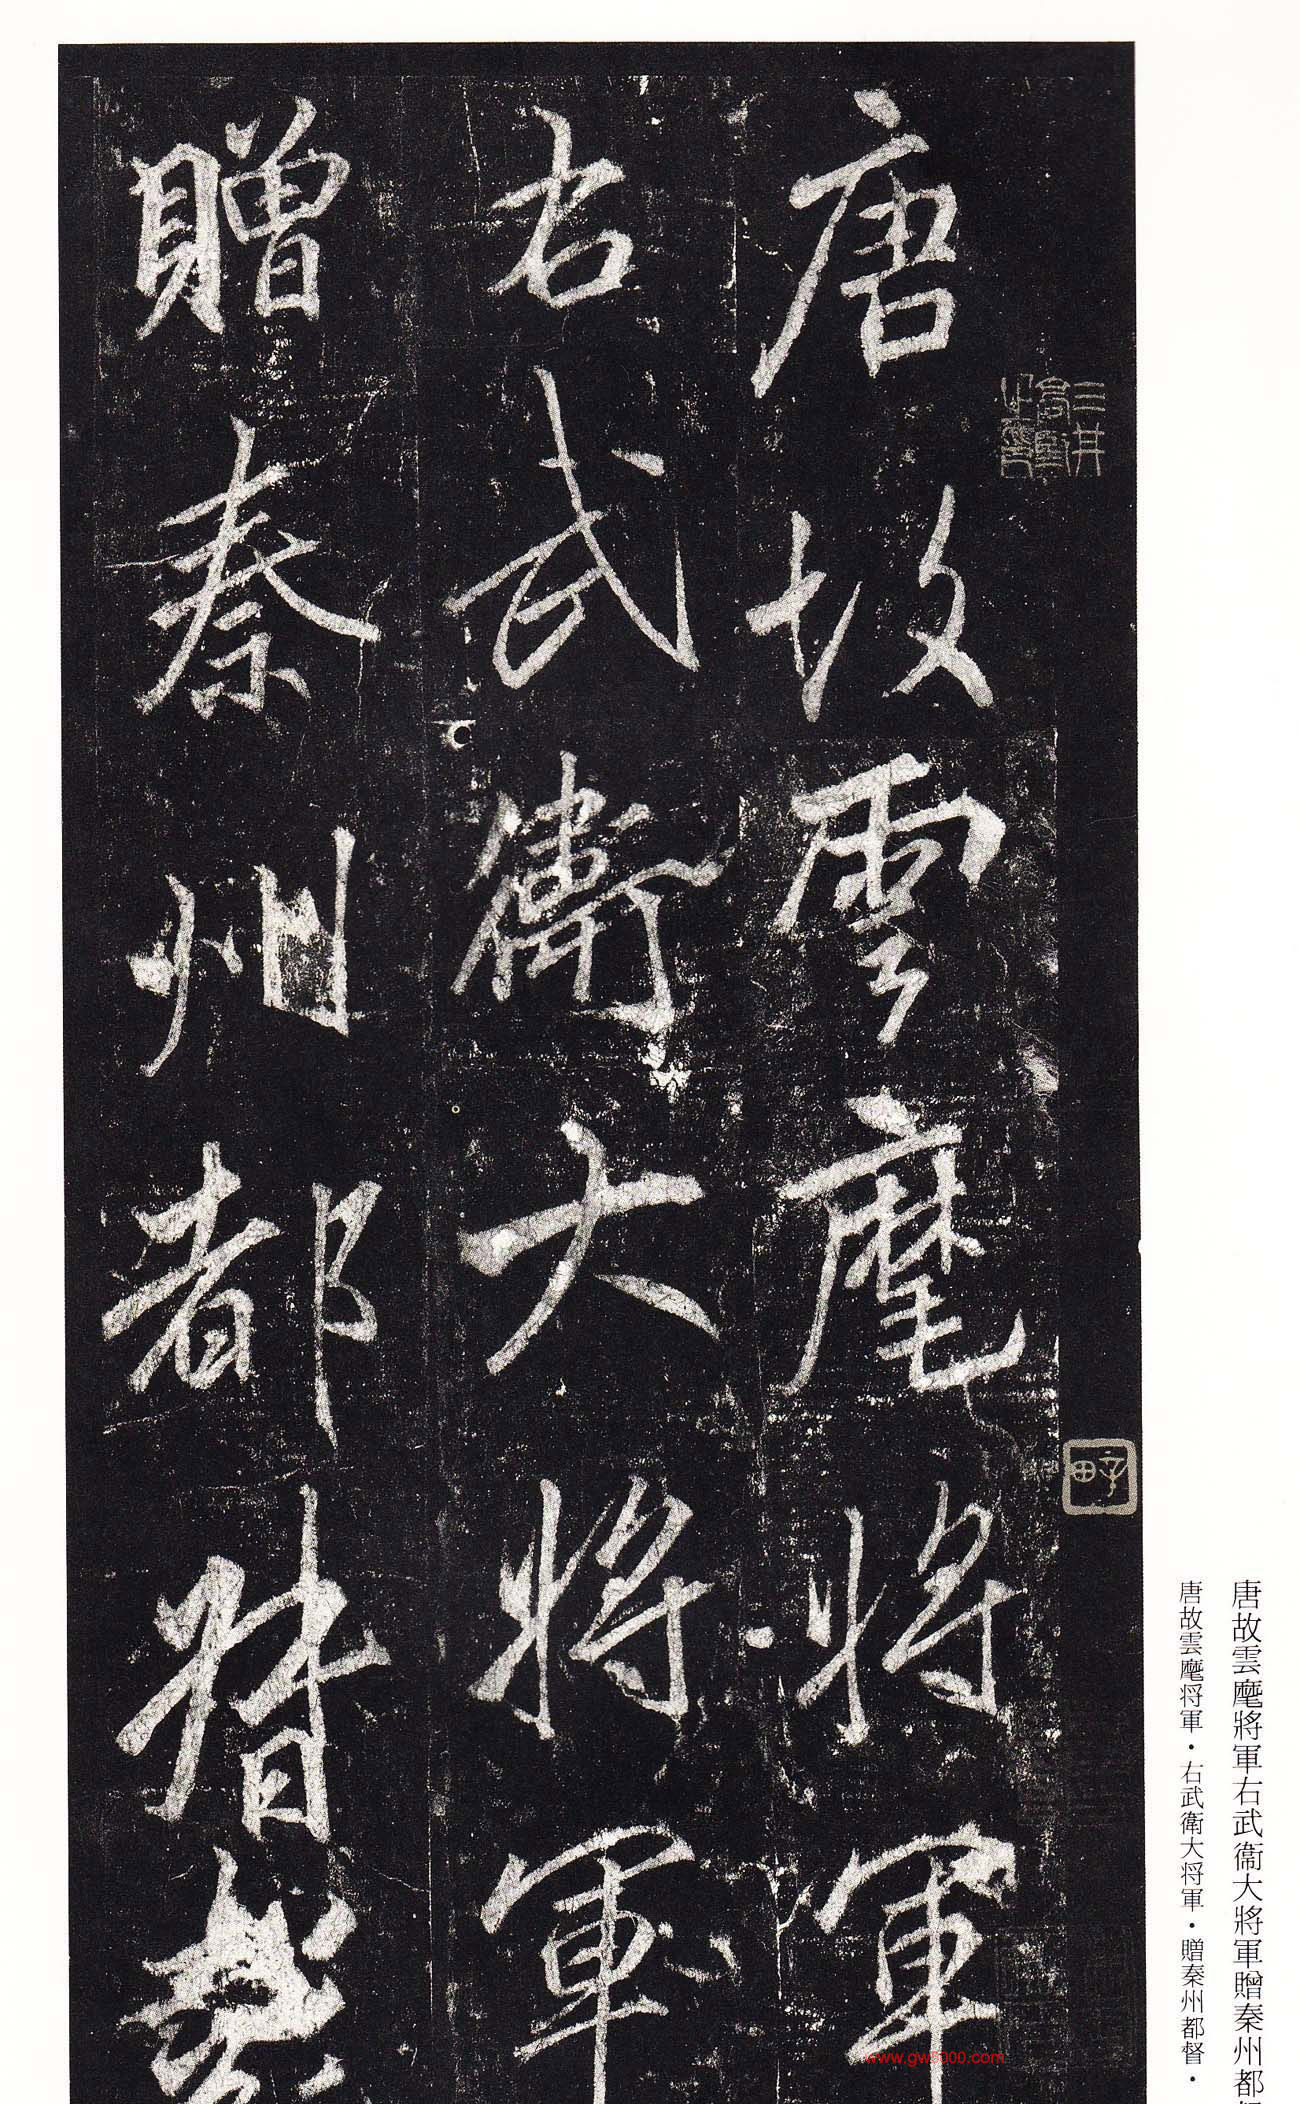 唐故雲麾將軍右武衞大將軍贈秦州都
唐故雲麾将軍・右武衛大将軍・贈秦州都督・
唐故雲麾將軍
右武衛大將軍
贈秦州都督
三井
www.gw8000.com